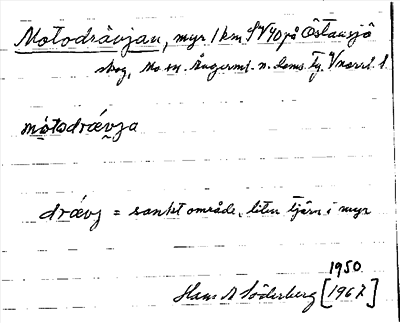 Motodrävjan, myr 1 km SV om Östansjö
skog, Mo sn. Ångerml. n. doms. tg. Vnorrl. l.
mòtodrǽvja
drǽvj = sankt område, liten tjärn i myr
1950
Hans A Söderberg [1967]